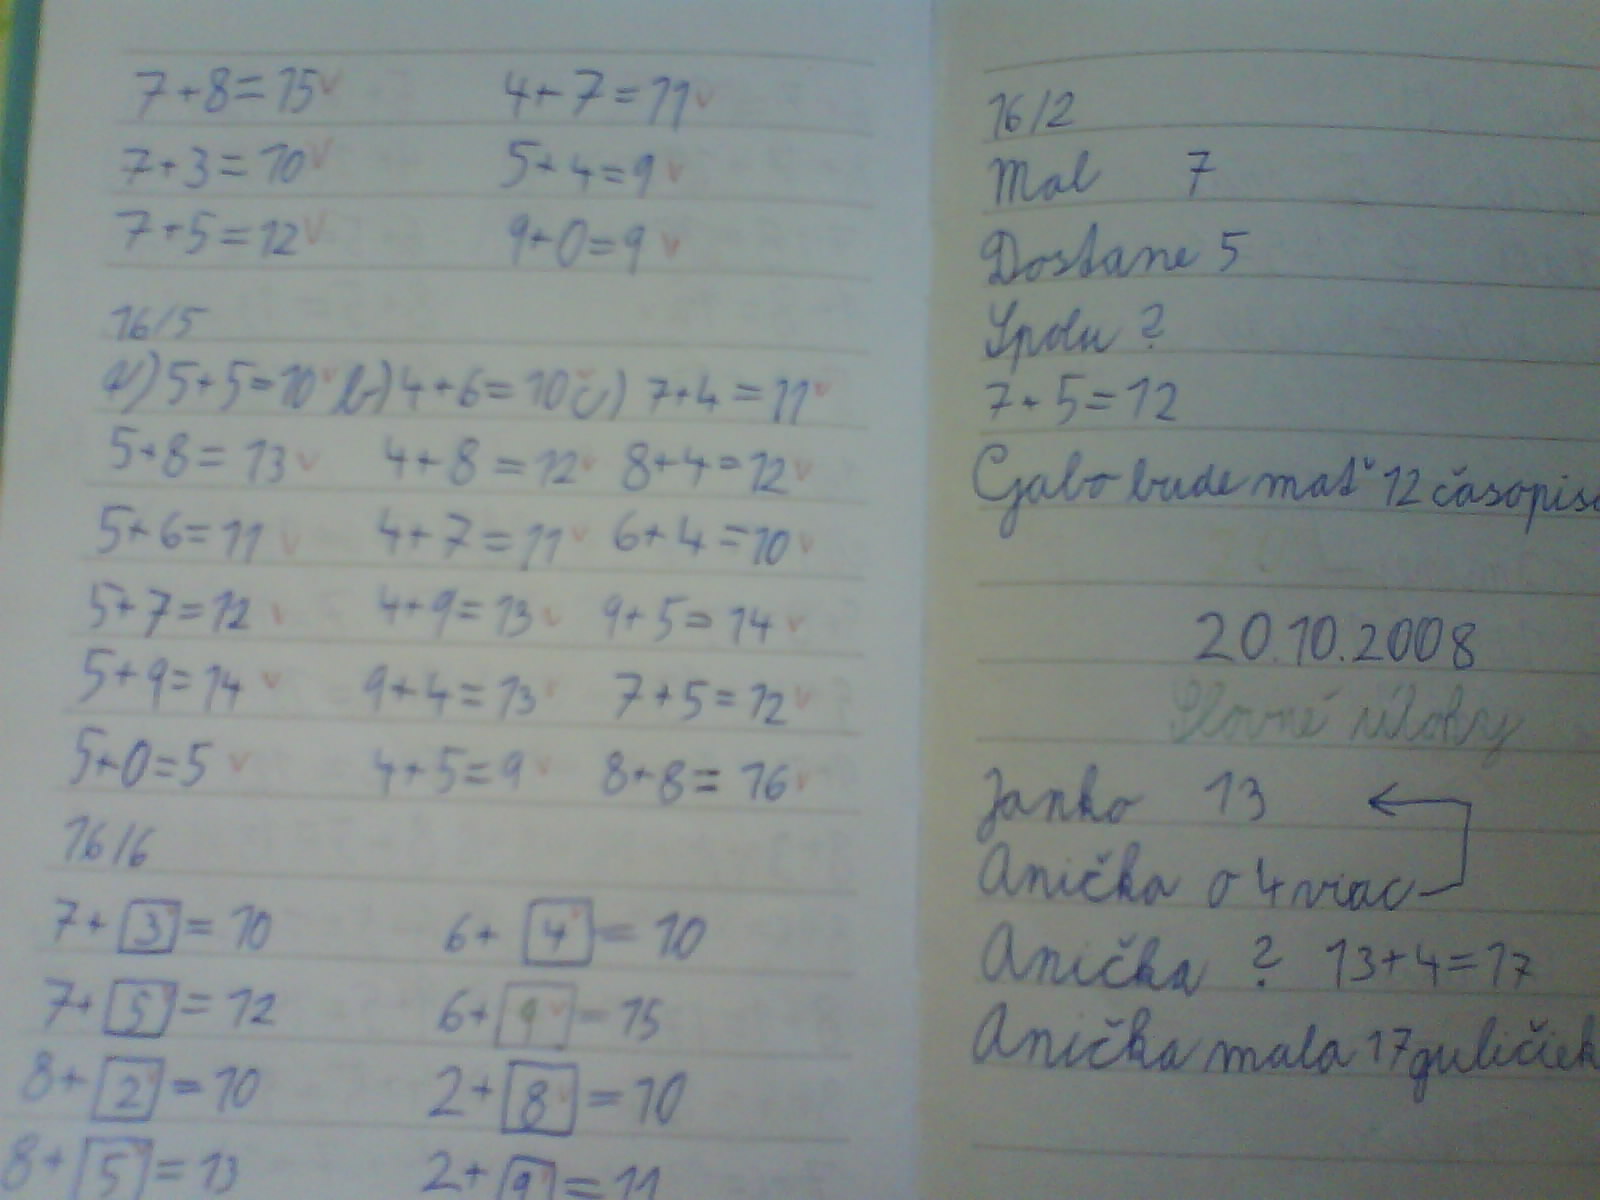 7+8=15 4+7=11
7+3=10 5+4=9
7+5=12 9+0=9
16/5
a) 5+5=10 b) 4+6=10 c) 7+4=11
5+8=13 4+8=12 8+4=12
5+6=11 4+7=11 6+4=10
5+7=12 4+9=13 9+5=14
5+9=14 9+4=13 7+5=12
5+0=5 4+5=9 8+8=16
16/6
7+3=10 6+4=10
7+5=12 6+9=15
8+2=10 2+8=10
8+5=13 2+9=11
16/2
Mal 7
Dostane 5
Spolu ?
7+5=12
Gabo bude mať 12 časopiso
20.10.2008
Slovné úlohy
Janko 13
Anička o 4 viac
Anička ? 13+4=17
Anička mala 17 guličiek